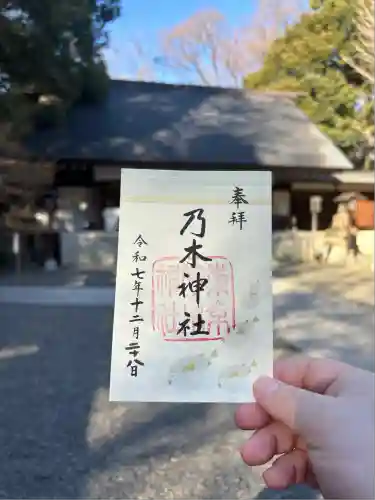 奉拝
乃木神社
令和七年十二月二十八日